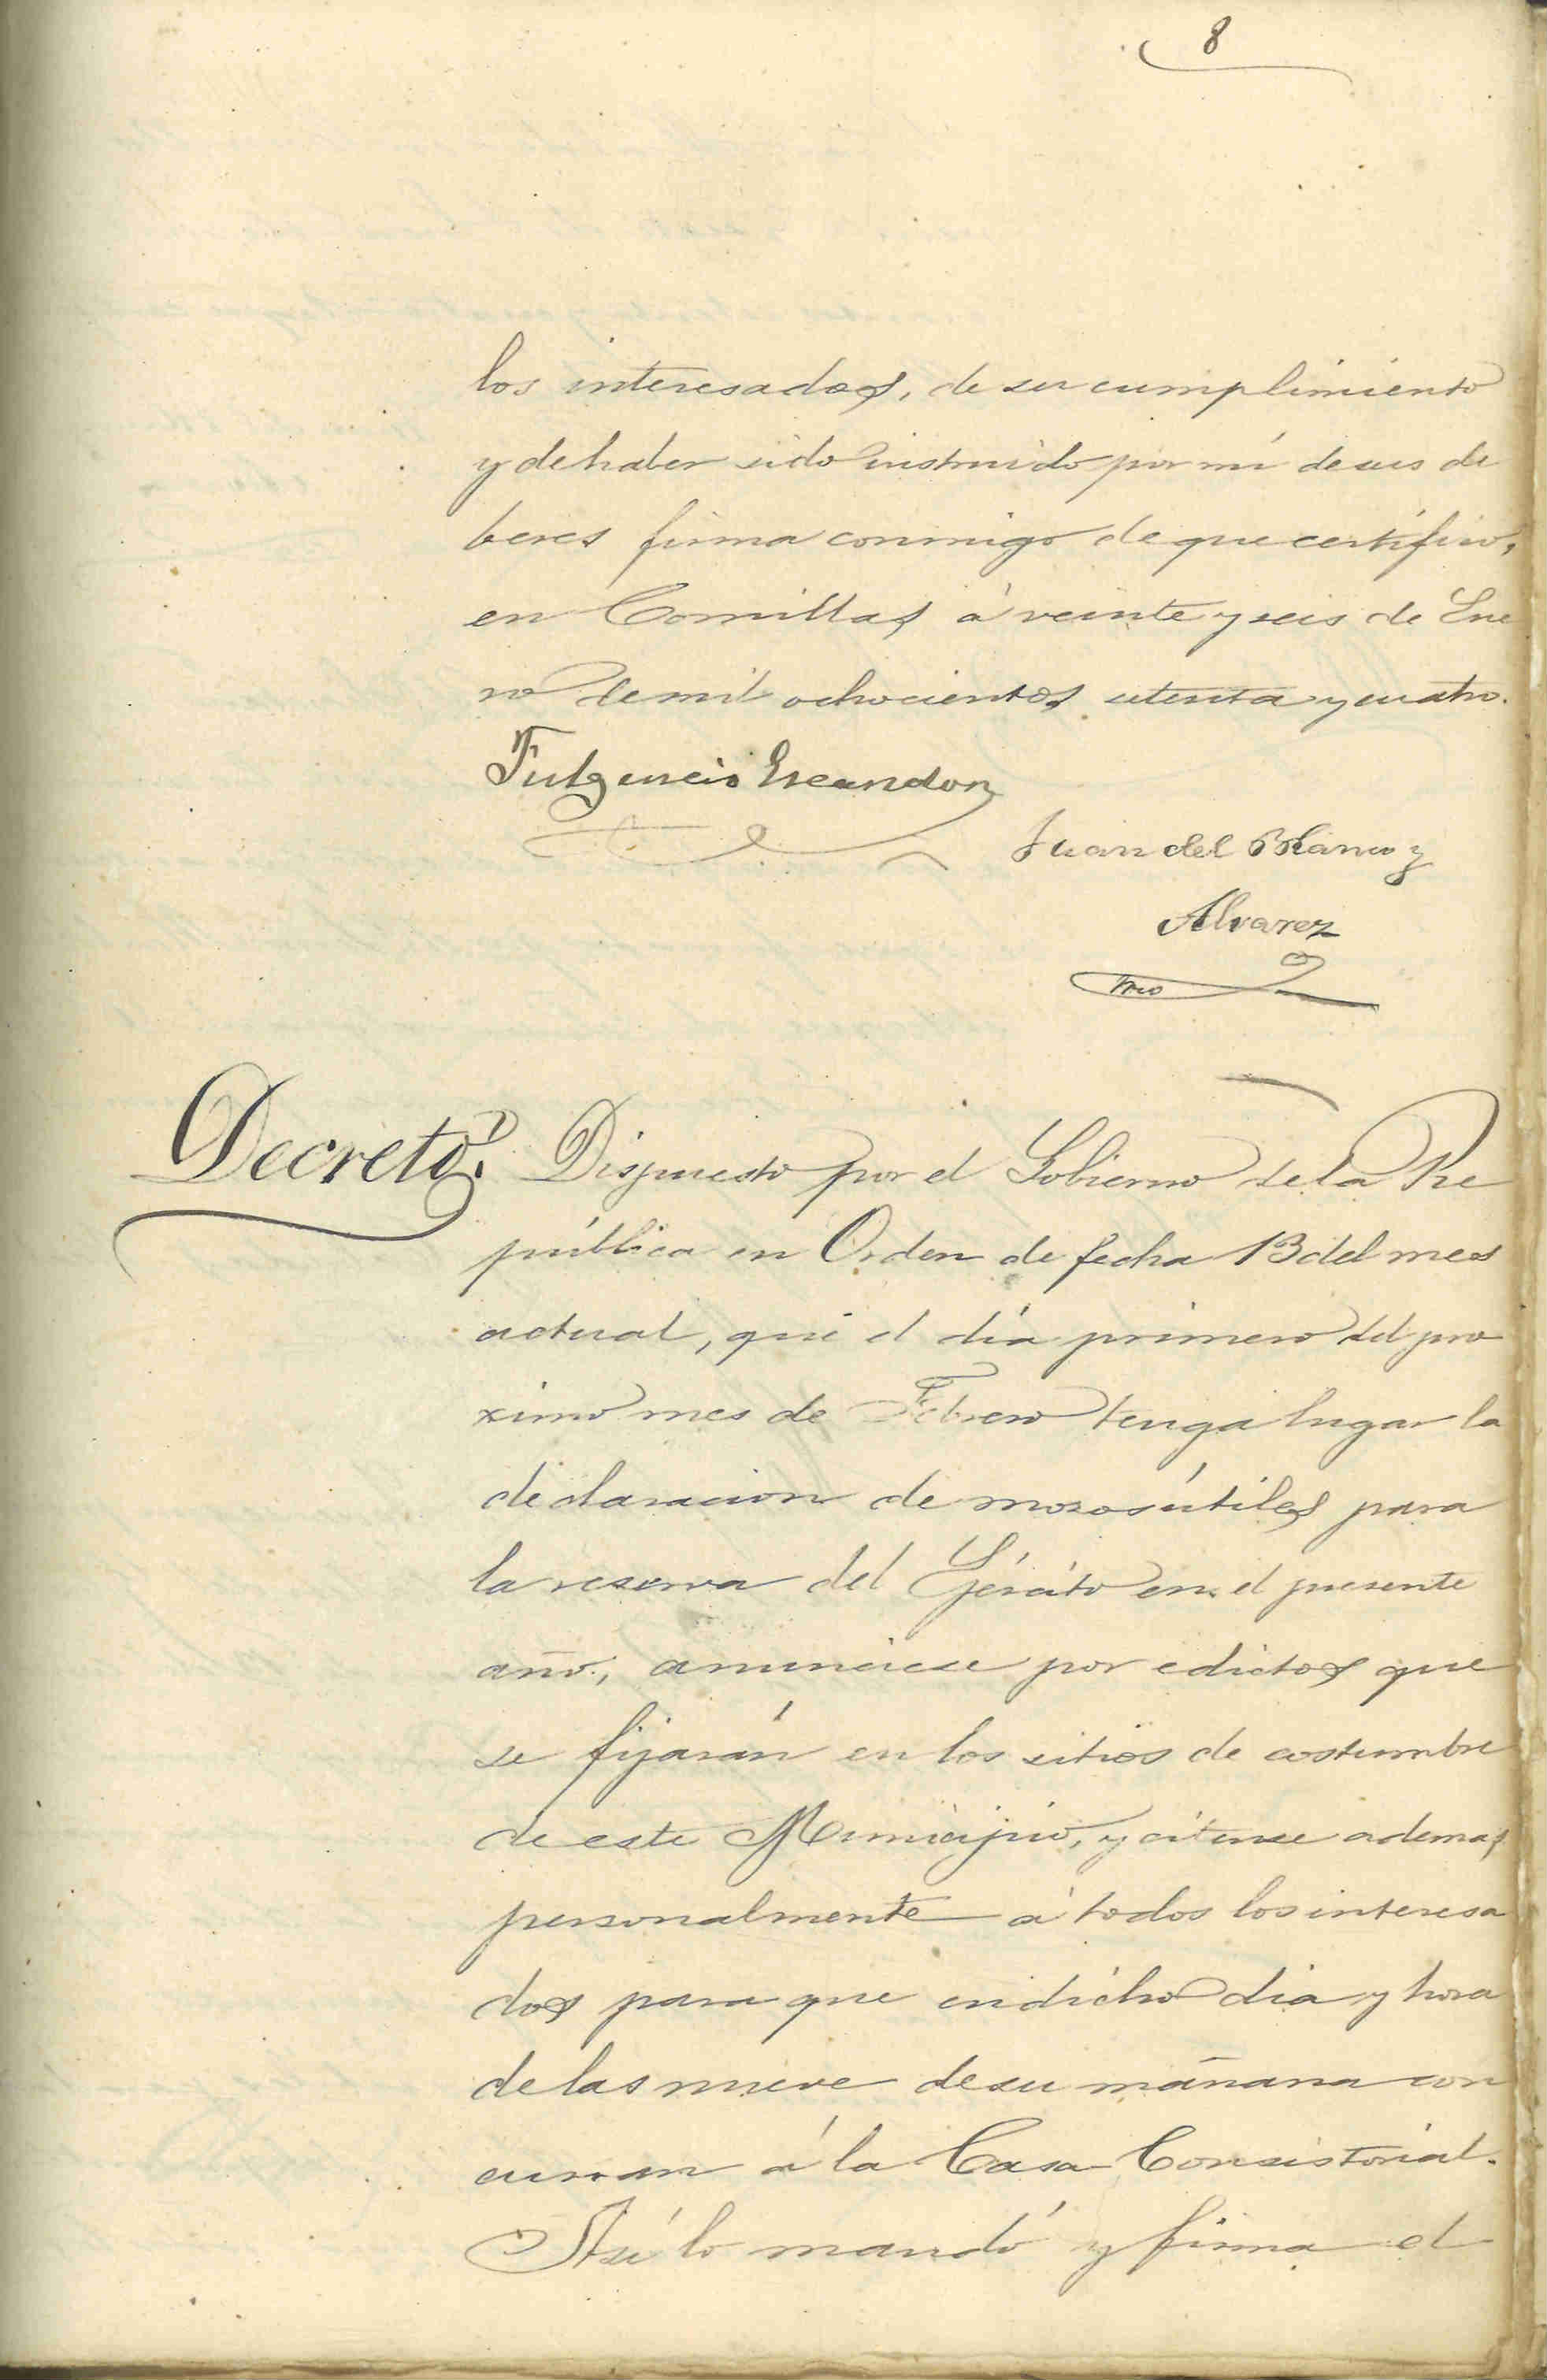 8
los interesados, de su cumplimiento
y de haber sido instruido por mi de sus de
beres firma conmigo de que certifico,
en Comillas á veinte y seis de Ene
ro de mil ochocientos setenta y cuatro.
Fulgencio Escandon
Juan del Blanco y
Alvarez
Srio
Decreto. Dispuesto por el Gobierno de la Re
pública en Orden de fecha 13 del mes
actual, que el dia primero del pro
ximo mes de Febrero tenga lugar la
declaracion de mozos útiles para
la reserva del Ejército en el presente
año, anunciese por edictos que
se fijarán en los sitios de costumbre
de este Municipio, y citense ademas
personalmente á todos los interesa
dos para que en dicho dia y hora
de las nueve de su mañana con
curran á la Casa Consistorial.
Así lo mandó y firma el